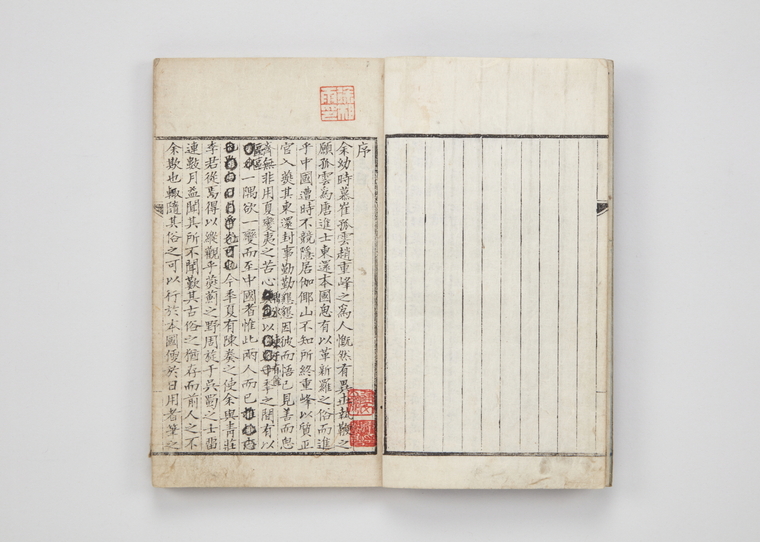 序
余幼時慕崔孤雲趙重峰之爲人慨然有異世執鞭之
願孤雲爲唐進士東還本國思有以革新羅之俗而進
乎中國遭時不競隱居伽倻山不知所終重峰以質正
官入燕其東還封事勤勤懇懇因彼而悟己見善而思
齊無非用夏變夷之苦心鴨水以東千有餘秊之間有以
區區一隅欲一變而至中國者惟此兩人而已
今秊夏有陳奏之使余與青莊
李君從焉得以縱觀乎燕薊之野周旋于吳蜀之士留
連數月益聞其所不聞歎其古俗之猶存而前人之不
余欺也輒隨其俗之可以行於本國便於日用者筆之